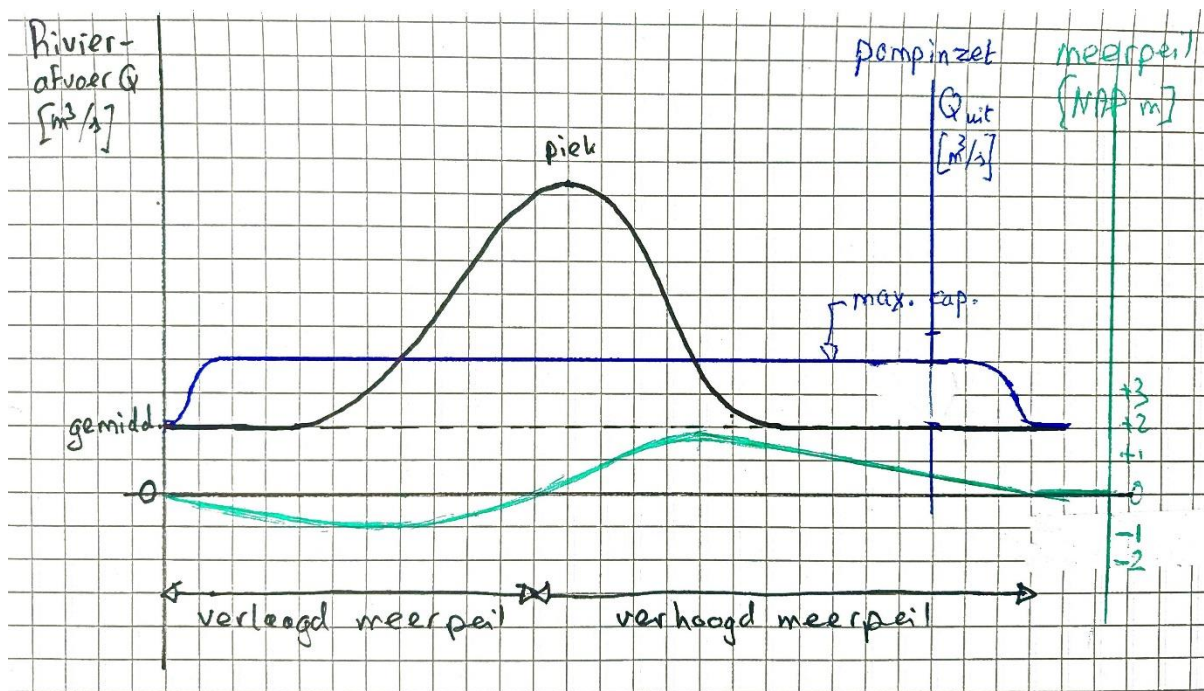 Rivier-
afvoer Q
[m³/s]
piek
pompinzet
Q uit
[m³/s]
meerpeil
[NAP m]
max. cap.
gemidd.
0
+3
+2
+1
0
-1
-2
verlaagd meerpeil
verhoogd meerpeil